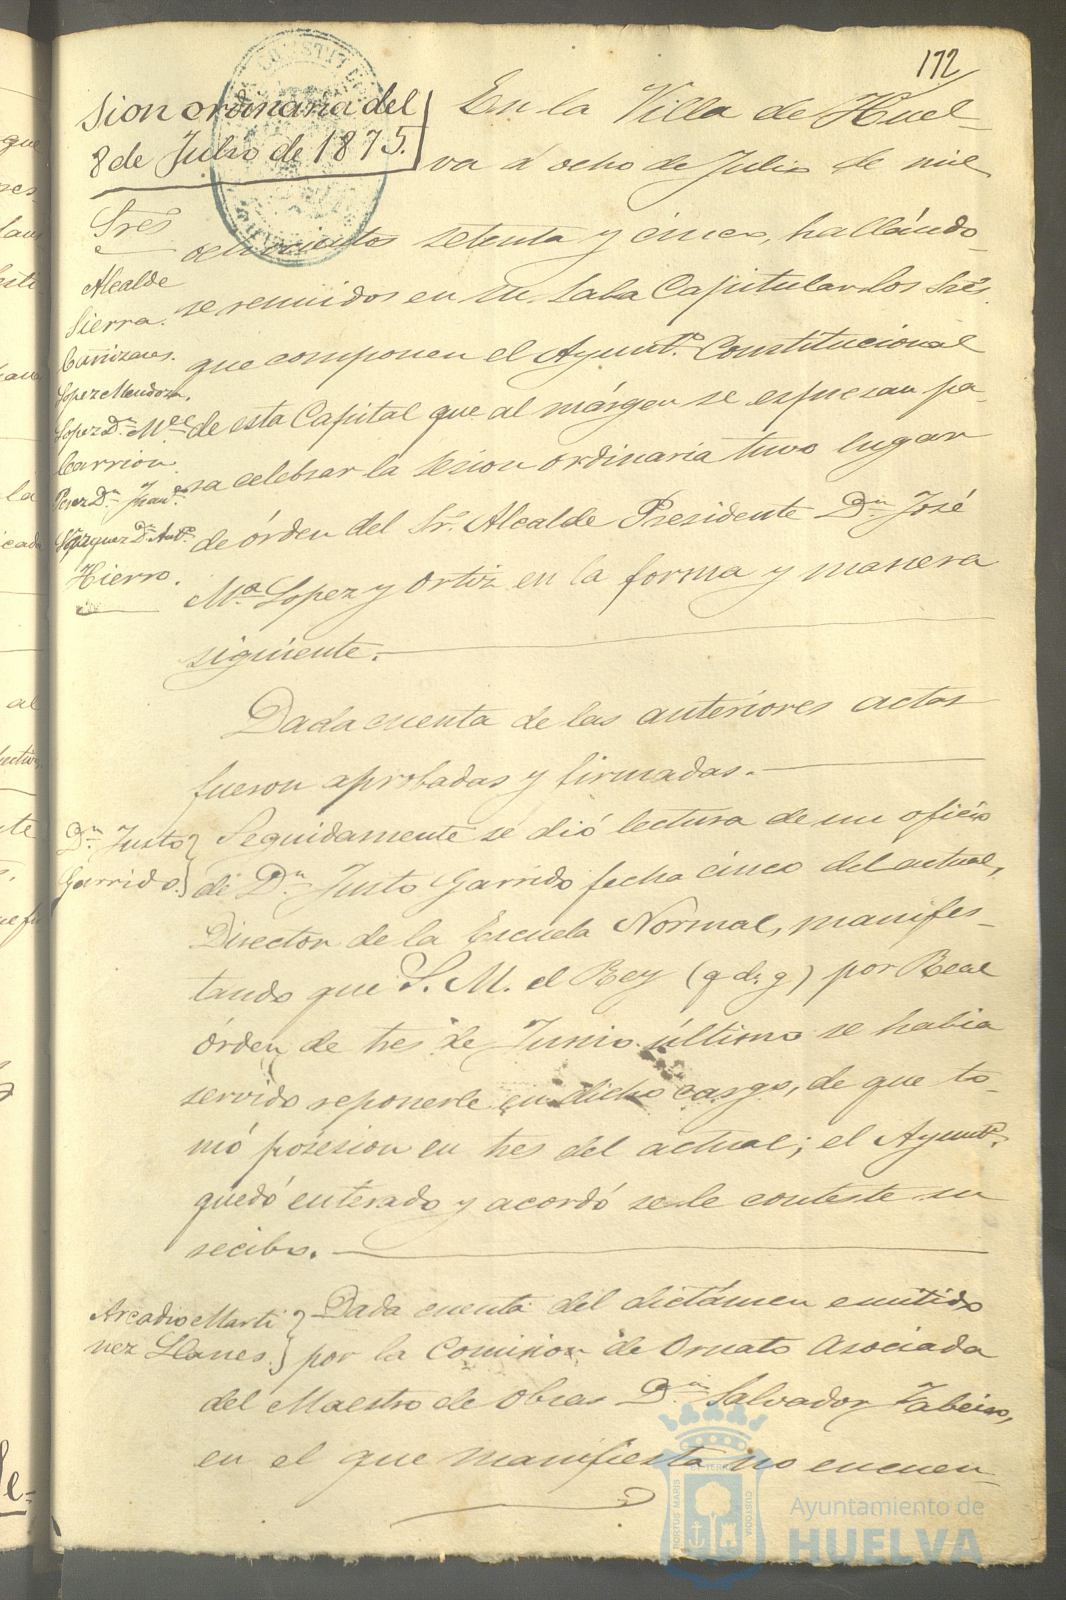 172
sion ordinaria del
8 de Julio de 1875.
Sres
Alcalde
Sierra.
Cañizares.
Lopez Mendoza.
Lopez Dn. Mel
Carrion.
Perez Dn. Juan
Dn. Anto.
Hierro.
En la Villa de Huel-
va á ocho de Julio de mil
ochocientos setenta y cinco, hallándo-
se reunidos en su Sala Capitular los Sres.
que componen el Ayunto. Constitucional
de esta Capital que al márgen se espresan pa-
ra celebrar la sesion ordinaria tuvo lugar
de órden del Sr. Alcalde Presidente Dn. José
Ma. Lopez y Ortiz en la forma y manera
siguiente.
Dada cuenta de las anteriores actas
fueron aprobadas y firmadas.
Dn. Justo
Garrido.
Seguidamente se dió lectura de un oficio
de Dn. Justo Garrido fecha cinco del actual,
Director de la Escuela Normal, manifes-
tando que S. M. el Rey (q d. g) por Real
órden de tres de Junio último se habia
servido reponerle en dicho cargo, de que to-
mó posesion en tres del actual; el Ayunto.
quedó enterado y acordó se le conteste su
recibo.
Arcadio Marti
nez Llanes.
Dada cuenta del dictámen emitido
por la Comision de Ornato asociada
del Maestro de Obras Dn. Salvador
en el que manifiesta no encuen-
PORTUS MARIS
ET TERRAE
CUSTODIA
Ayuntamiento de
HUELVA